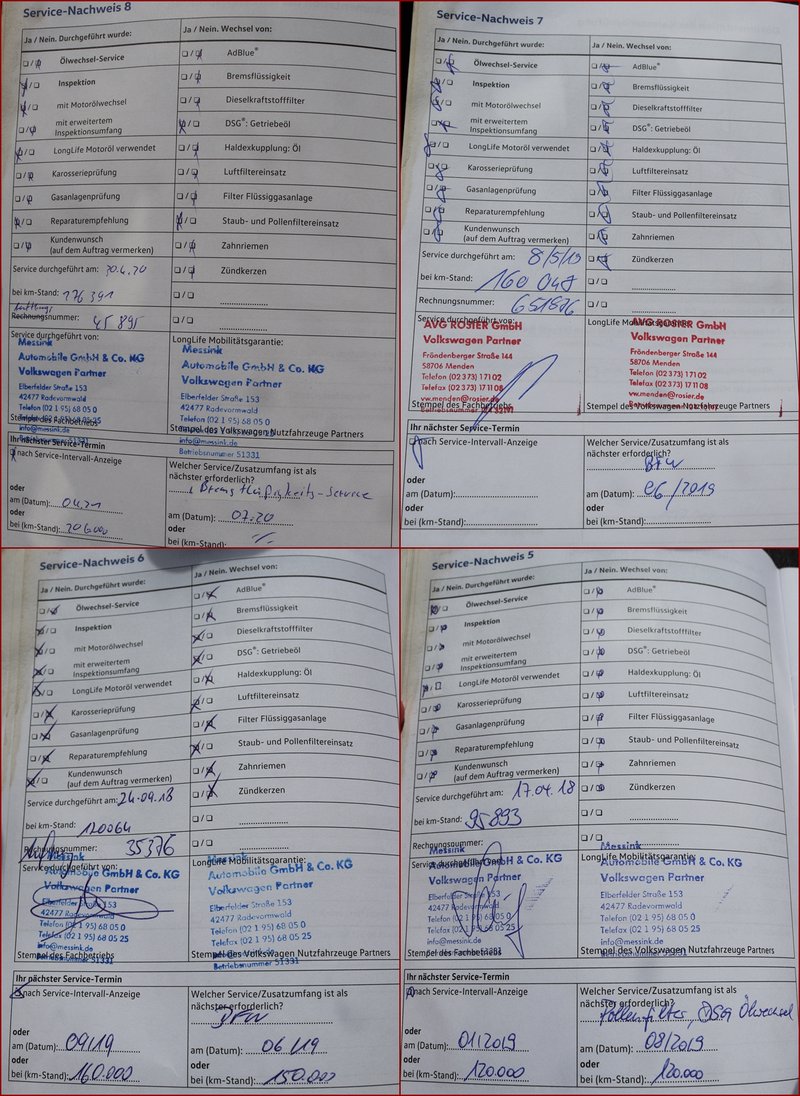 Service-Nachweis 8
Ja / Nein. Durchgeführt wurde:
Ölwechsel-Service
Inspektion
mit Motorölwechsel
mit erweitertem
Inspektionsumfang
LongLife Motoröl verwendet
Karosserieprüfung
Gasanlagenprüfung
Reparaturempfehlung
Kundenwunsch
(auf dem Auftrag vermerken)
Service durchgeführt am: 20.4.20
bei km-Stand: 176391
Rechnungsnummer: 45895
Service durchgeführt von:
Messink
Automobile GmbH & Co. KG
Volkswagen Partner
Elberfelder Straße 153
42477 Radevormwald
Telefon (02 1 95) 68 05 0
Telefax (02 1 95) 68 05 25
Stempel des Fachbetriebs
info@messink.de
Betriebsnummer 51331
Ja / Nein. Wechsel von:
AdBlue®
Bremsflüssigkeit
Dieselkraftstofffilter
DSG®: Getriebeöl
Haldexkupplung: Öl
Luftfiltereinsatz
Filter Flüssiggasanlage
Staub- und Pollenfiltereinsatz
Zahnriemen
Zündkerzen
LongLife Mobilitätsgarantie:
Messink
Automobile GmbH & Co. KG
Volkswagen Partner
Elberfelder Straße 153
42477 Radevormwald
Telefon (02 1 95) 68 05 0
Telefax (02 1 95) 68 05 25
Stempel des Volkswagen Nutzfahrzeuge Partners
info@messink.de
Betriebsnummer 51331
Ihr nächster Service-Termin
nach Service-Intervall-Anzeige
oder
am (Datum): 04.21
oder
bei (km-Stand): 206000
Welcher Service/Zusatzumfang ist als
nächster erforderlich?
Bremsflüßigkeits-Service
am (Datum): 07.20
oder
bei (km-Stand):
Service-Nachweis 7
Ja / Nein. Durchgeführt wurde:
Ölwechsel-Service
Inspektion
mit Motorölwechsel
mit erweitertem
Inspektionsumfang
LongLife Motoröl verwendet
Karosserieprüfung
Gasanlagenprüfung
Reparaturempfehlung
Kundenwunsch
(auf dem Auftrag vermerken)
Service durchgeführt am: 8/5/19
bei km-Stand: 160 048
Rechnungsnummer: 651876
Service durchgeführt von:
AVG ROSIER GmbH
Volkswagen Partner
Fröndenberger Straße 144
58706 Menden
Telefon (02 373) 171 02
Telefax (02 373) 171 108
vw.menden@rosier.de
Stempel des Fachbetriebs
Ja / Nein. Wechsel von:
AdBlue®
Bremsflüssigkeit
Dieselkraftstofffilter
DSG®: Getriebeöl
Haldexkupplung: Öl
Luftfiltereinsatz
Filter Flüssiggasanlage
Staub- und Pollenfiltereinsatz
Zahnriemen
Zündkerzen
LongLife Mobilitätsgarantie:
AVG ROSIER GmbH
Volkswagen Partner
Fröndenberger Straße 144
58706 Menden
Telefon (02 373) 171 02
Telefax (02 373) 171 108
vw.menden@rosier.de
Stempel des Volkswagen Nutzfahrzeuge Partners
Ihr nächster Service-Termin
nach Service-Intervall-Anzeige
oder
am (Datum):
oder
bei (km-Stand):
Welcher Service/Zusatzumfang ist als
nächster erforderlich?
am (Datum): 06/2019
oder
bei (km-Stand):
Service-Nachweis 6
Ja / Nein. Durchgeführt wurde:
Ölwechsel-Service
Inspektion
mit Motorölwechsel
mit erweitertem
Inspektionsumfang
LongLife Motoröl verwendet
Karosserieprüfung
Gasanlagenprüfung
Reparaturempfehlung
Kundenwunsch
(auf dem Auftrag vermerken)
Service durchgeführt am: 24.09.18
bei km-Stand: 120064
Rechnungsnummer: 35376
Service durchgeführt von:
Messink
Automobile GmbH & Co. KG
Volkswagen Partner
Elberfelder Straße 153
42477 Radevormwald
Telefon (02 1 95) 68 05 0
Telefax (02 1 95) 68 05 25
info@messink.de
Stempel des Fachbetriebs
Betriebsnummer 51331
Ja / Nein. Wechsel von:
AdBlue®
Bremsflüssigkeit
Dieselkraftstofffilter
DSG®: Getriebeöl
Haldexkupplung: Öl
Luftfiltereinsatz
Filter Flüssiggasanlage
Staub- und Pollenfiltereinsatz
Zahnriemen
Zündkerzen
LongLife Mobilitätsgarantie:
Messink
Automobile GmbH & Co. KG
Volkswagen Partner
Elberfelder Straße 153
42477 Radevormwald
Telefon (02 1 95) 68 05 0
Telefax (02 1 95) 68 05 25
info@messink.de
Stempel des Volkswagen Nutzfahrzeuge Partners
Betriebsnummer 51331
Ihr nächster Service-Termin
nach Service-Intervall-Anzeige
oder
am (Datum): 09/19
oder
bei (km-Stand): 160.000
Welcher Service/Zusatzumfang ist als
nächster erforderlich?
am (Datum): 06/19
oder
bei (km-Stand): 150.000
Service-Nachweis 5
Ja / Nein. Durchgeführt wurde:
Ölwechsel-Service
Inspektion
mit Motorölwechsel
mit erweitertem
Inspektionsumfang
LongLife Motoröl verwendet
Karosserieprüfung
Gasanlagenprüfung
Reparaturempfehlung
Kundenwunsch
(auf dem Auftrag vermerken)
Service durchgeführt am: 17.04.18
bei km-Stand: 95893
Rechnungsnummer:
Service durchgeführt von:
Messink
Automobile GmbH & Co. KG
Volkswagen Partner
Elberfelder Straße 153
42477 Radevormwald
Telefon (02 1 95) 68 05 0
Telefax (02 1 95) 68 05 25
info@messink.de
Stempel des Fachbetriebs
Ja / Nein. Wechsel von:
AdBlue®
Bremsflüssigkeit
Dieselkraftstofffilter
DSG®: Getriebeöl
Haldexkupplung: Öl
Luftfiltereinsatz
Filter Flüssiggasanlage
Staub- und Pollenfiltereinsatz
Zahnriemen
Zündkerzen
LongLife Mobilitätsgarantie:
Messink
Automobile GmbH & Co. KG
Volkswagen Partner
Elberfelder Straße 153
42477 Radevormwald
Telefon (02 1 95) 68 05 0
Telefax (02 1 95) 68 05 25
info@messink.de
Stempel des Volkswagen Nutzfahrzeuge Partners
Ihr nächster Service-Termin
nach Service-Intervall-Anzeige
oder
am (Datum): 01/2019
oder
bei (km-Stand): 120.000
Welcher Service/Zusatzumfang ist als
nächster erforderlich?
Pollenfilter, DSG Ölwechsel
am (Datum): 08/2019
oder
bei (km-Stand): 120.000